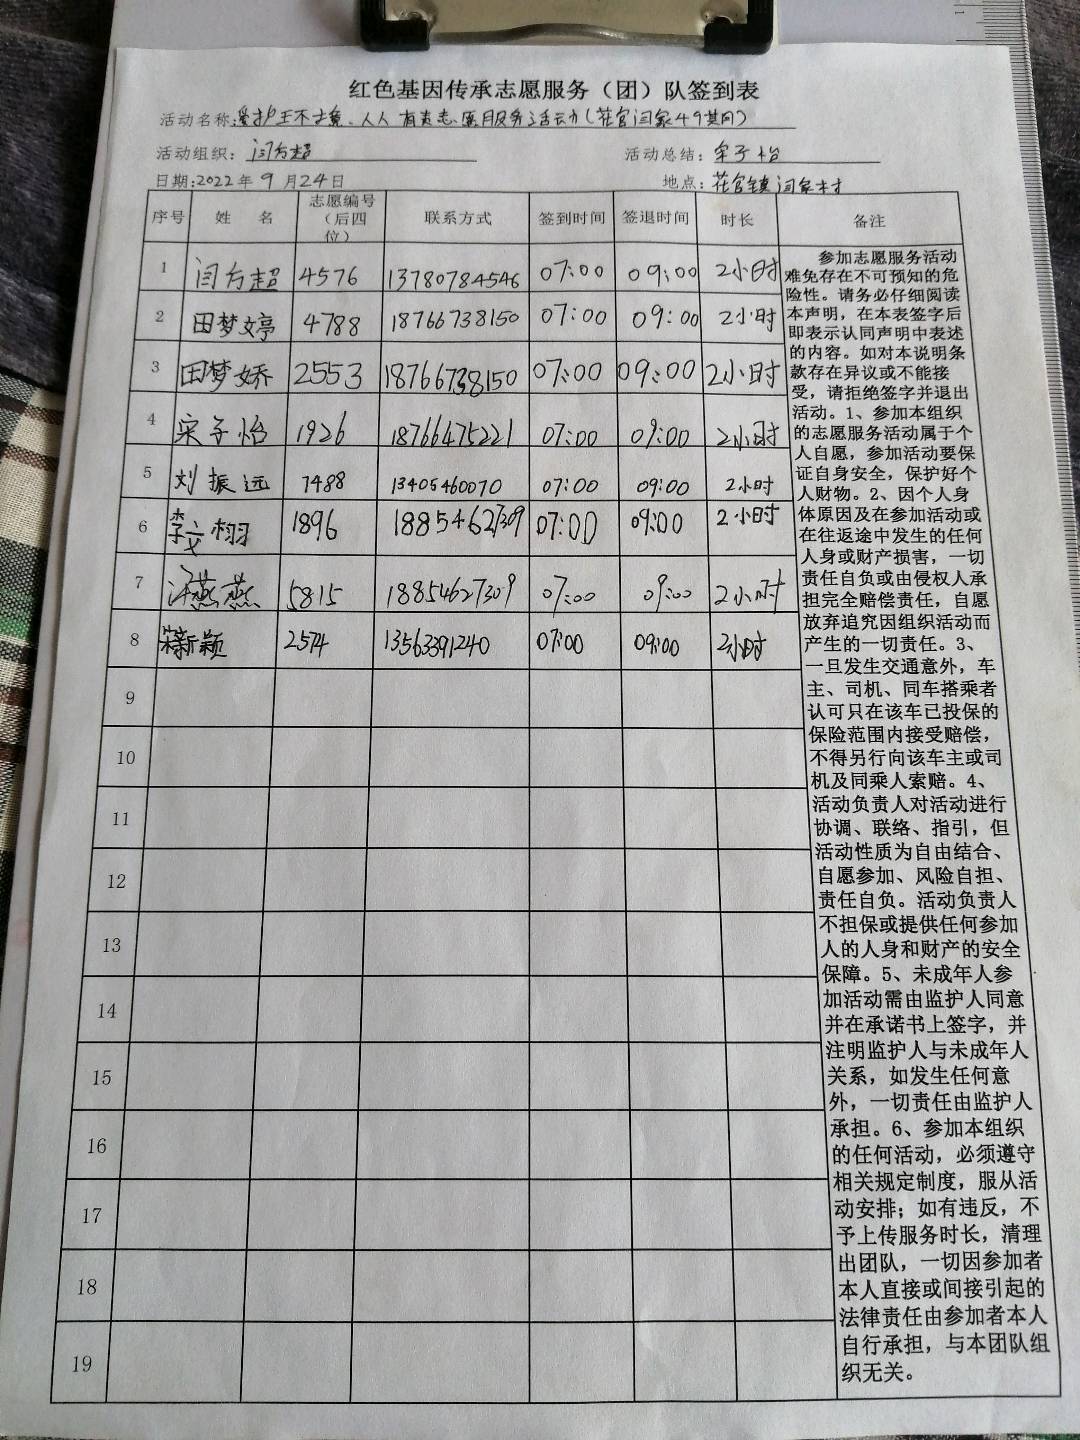 红色基因传承志愿服务（团）队签到表
活动名称：爱护环境、人人有责志愿服务活动（花官闫家49其向）
活动组织：闫方超 活动总结：宋子怡
日期：2022年9月24日 地点：花官镇闫家村
序号 姓 名 志愿编号（后四位） 联系方式 签到时间 签退时间 时长 备注
1 闫方超 4576 13780784546 07:00 09:00 2小时
2 田梦婷 4788 18766738150 07:00 09:00 2小时
3 田梦娇 2553 18766738150 07:00 09:00 2小时
4 宋子怡 1926 18766475221 07:00 09:00 2小时
5 刘振远 7488 13405460070 07:00 09:00 2小时
6 李文栩 1896 18854627309 07:00 09:00 2小时
7 燕燕 5815 18854627309 07:00 09:00 2小时
8 新颖 2574 13563391240 07:00 09:00 2小时
9
10
11
12
13
14
15
16
17
18
19
参加志愿服务活动
难免存在不可预知的危
险性。请务必仔细阅读
本声明，在本表签字后
即表示认同声明中表述
的内容。如对本说明条
款存在异议或不能接
受，请拒绝签字并退出
活动。1、参加本组织
的志愿服务活动属于个
人自愿，参加活动要保
证自身安全，保护好个
人财物。2、因个人身
体原因及在参加活动或
在往返途中发生的任何
人身或财产损害，一切
责任自负或由侵权人承
担完全赔偿责任，自愿
放弃追究因组织活动而
产生的一切责任。3、
一旦发生交通意外，车
主、司机、同车搭乘者
认可只在该车已投保的
保险范围内接受赔偿，
不得另行向该车主或司
机及同乘人索赔。4、
活动负责人对活动进行
协调、联络、指引，但
活动性质为自由结合、
自愿参加、风险自担、
责任自负。活动负责人
不担保或提供任何参加
人的人身和财产的安全
保障。5、未成年人参
加活动需由监护人同意
并在承诺书上签字，并
注明监护人与未成年人
关系，如发生任何意
外，一切责任由监护人
承担。6、参加本组织
的任何活动，必须遵守
相关规定制度，服从活
动安排；如有违反，不
予上传服务时长，清理
出团队，一切因参加者
本人直接或间接引起的
法律责任由参加者本人
自行承担，与本团队组
织无关。